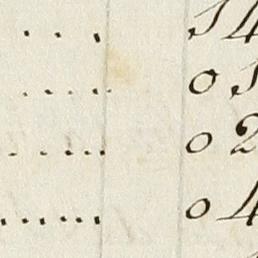 ... 14
.... 0 1
.... 0 2
...... 0 4